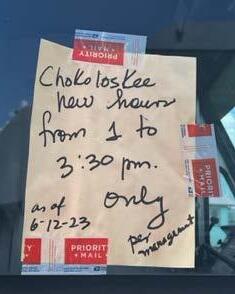 PRIORITY
★ MAIL ★
Chokoloskee
new hours
from 1 to
3:30 pm.
only
as of
6-12-23
per
management
PRIORITY
★ MAIL ★
Y
IL ★
PRIORIT
★ MAIL ★